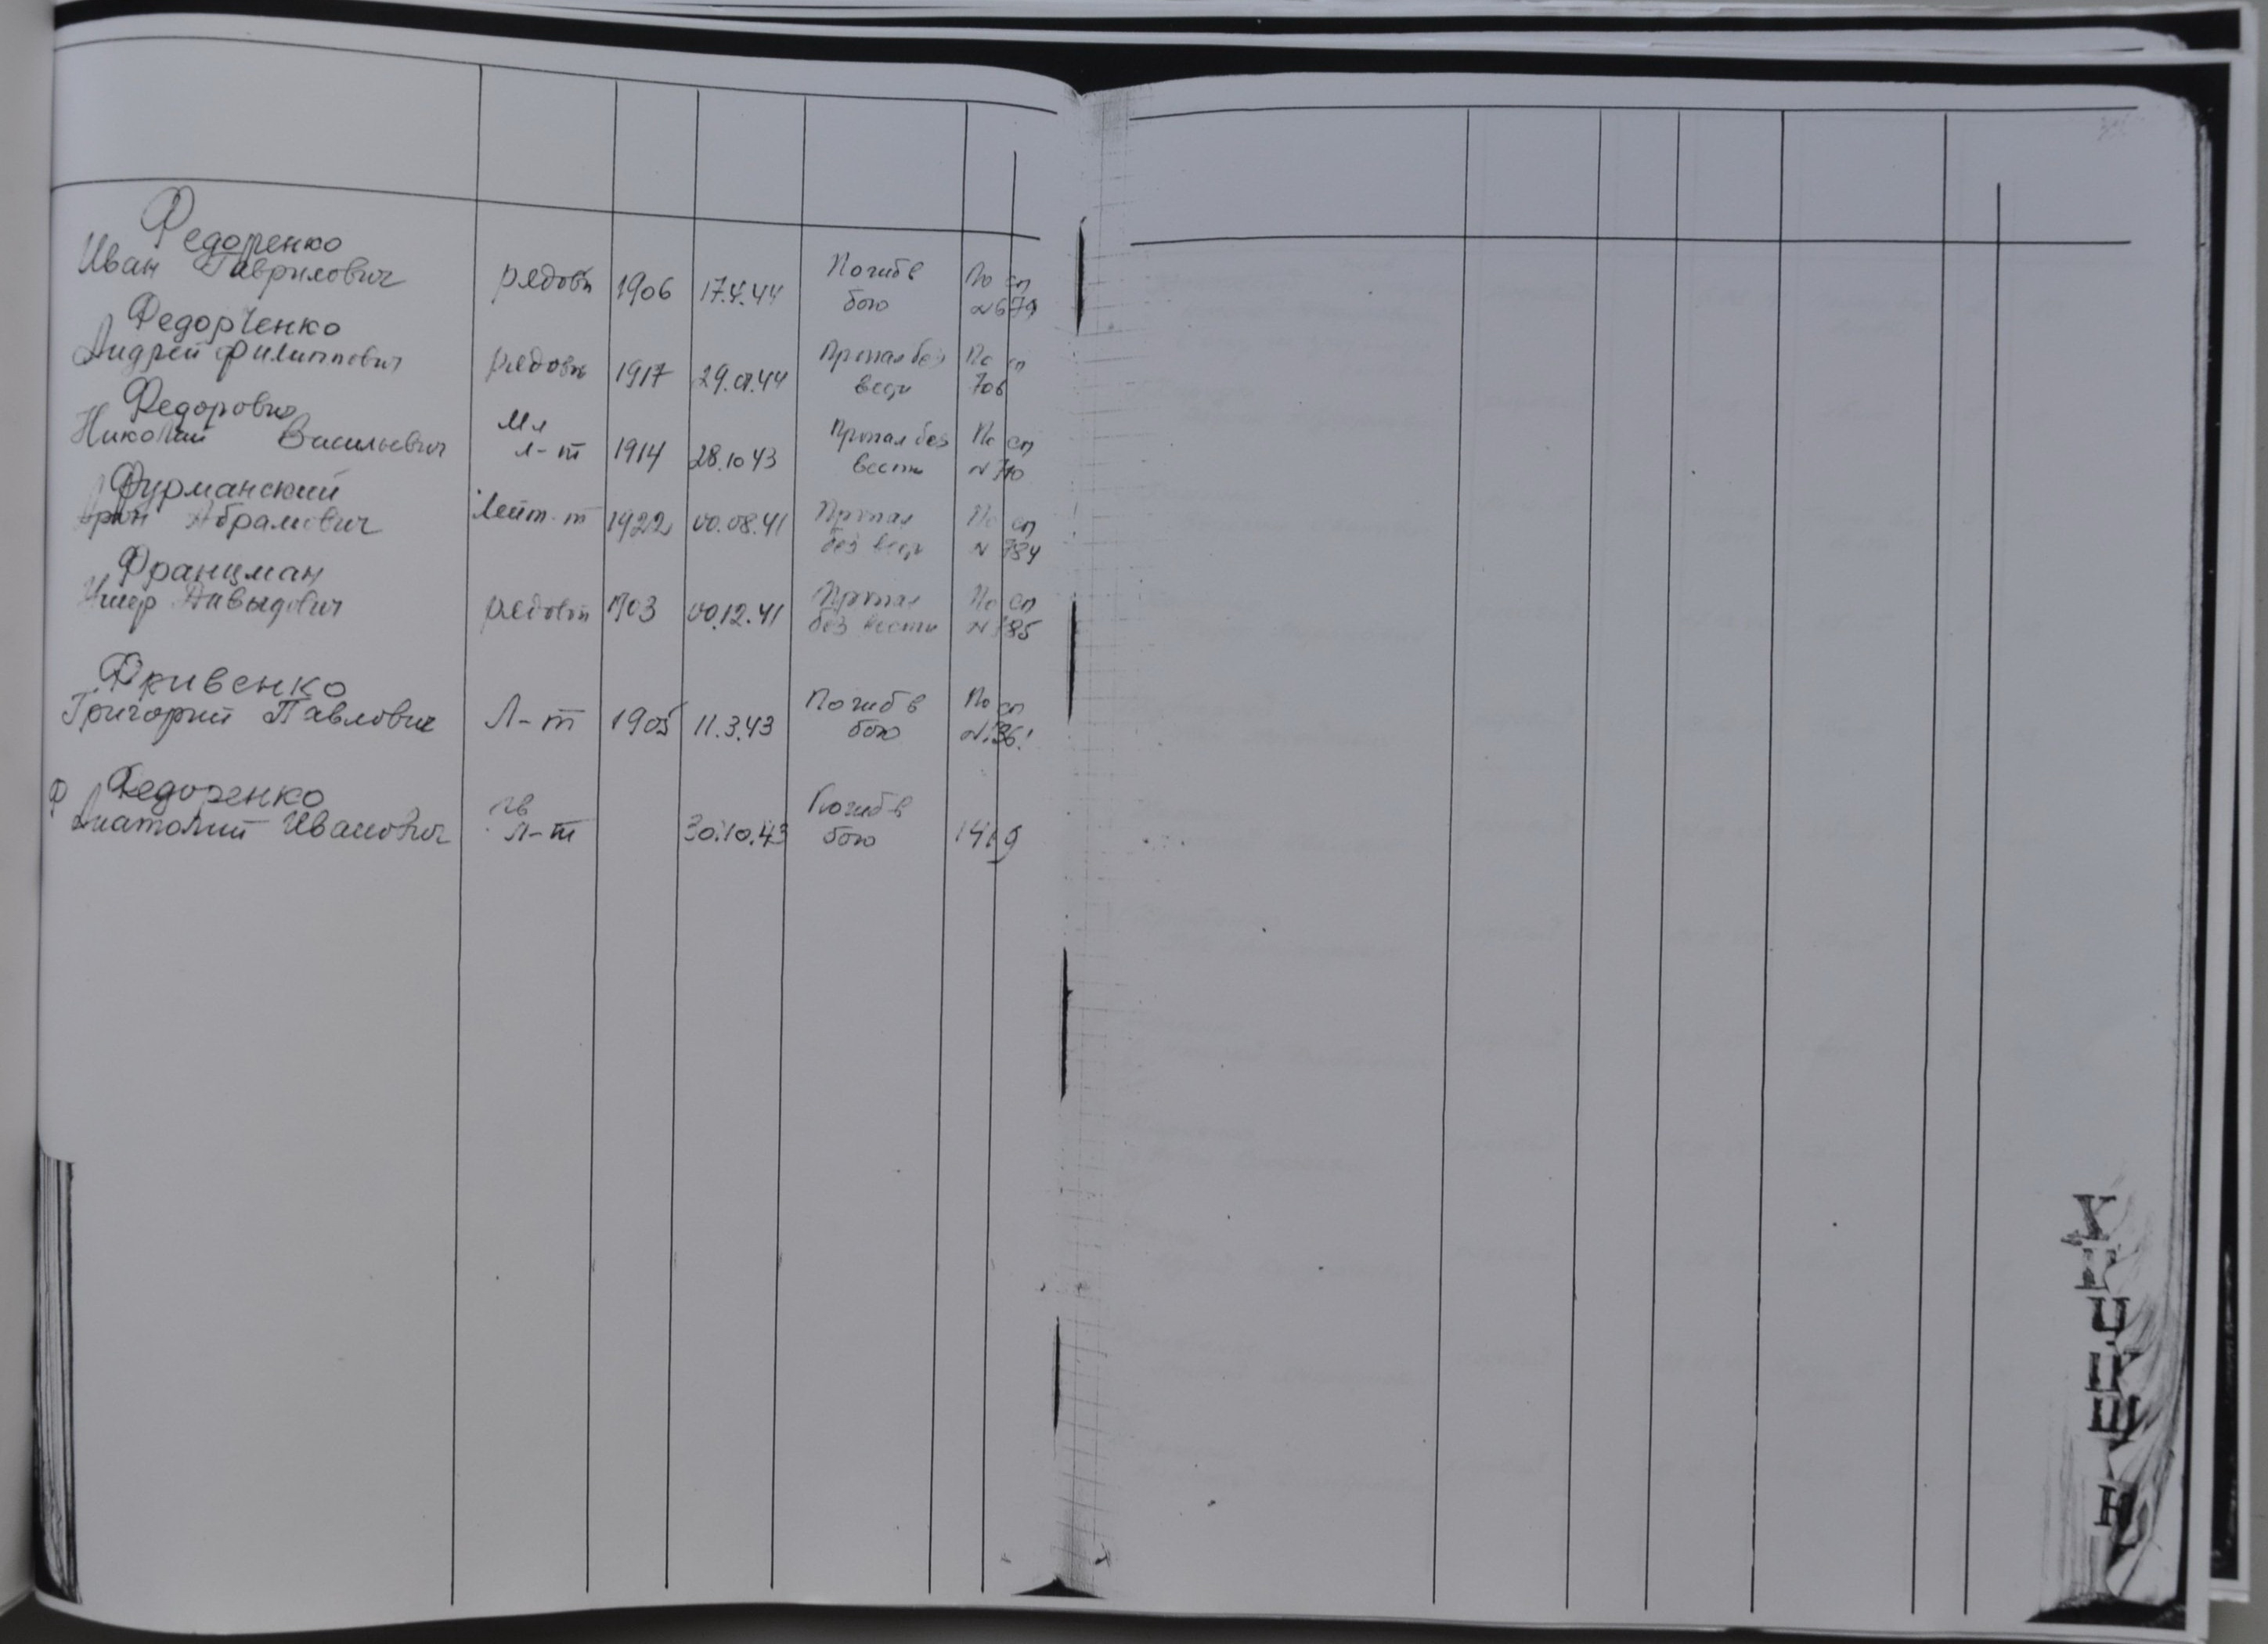 Федоренко
Иван Гаврилович рядов 1906 17.4.44 Погиб в бою По сп №679
Федорченко
Андрей Филиппович рядов 1917 29.01.44 Пропал без вести По сп 706
Федорович
Николай Васильевич Мл л-т 1914 28.10 43 Пропал без вести По сп №710
Фурманский
Арон Абрамович Лейт-т 1922 00.08.41 Пропал без вести По сп №784
Францман
Давыдович рядов 1903 00.12.41 Пропал без вести По сп №785
Фривенко
Григорий Павлович Л-т 1905 11.3.43 Погиб в бою По сп
Ф Федоренко
Анатолий Иванович гв л-т 30.10.43 Погиб в бою 1419
Х
Ц
Щ